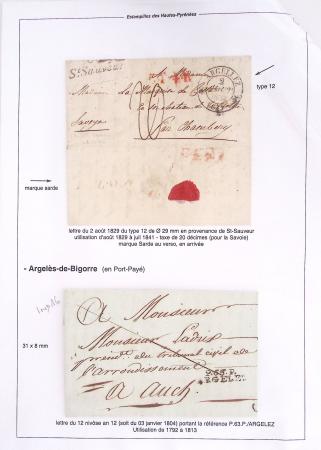 Estampilles des Hautes-Pyrénées
St Sauveur
ARGELEZ
A Madame
type 12
Madame la
Savoye
Par Chambery
marque sarde
lettre du 2 août 1829 du type 12 de Ø 29 mm en provenance de St-Sauveur
utilisation d'août 1829 à juil 1841 - taxe de 20 décimes (pour la Savoie)
marque Sarde au verso, en arrivée
- Argelès-de-Bigorre (en Port-Payé)
A Monsieur
31 x 8 mm
Monsieur
du tribunal civil de
l'arrondissement
P.63.P.
ARGELEZ
à Auch
lettre du 12 nivôse an 12 (soit du 03 janvier 1804) portant la référence P.63.P./ARGELEZ
Utilisation de 1792 à 1813